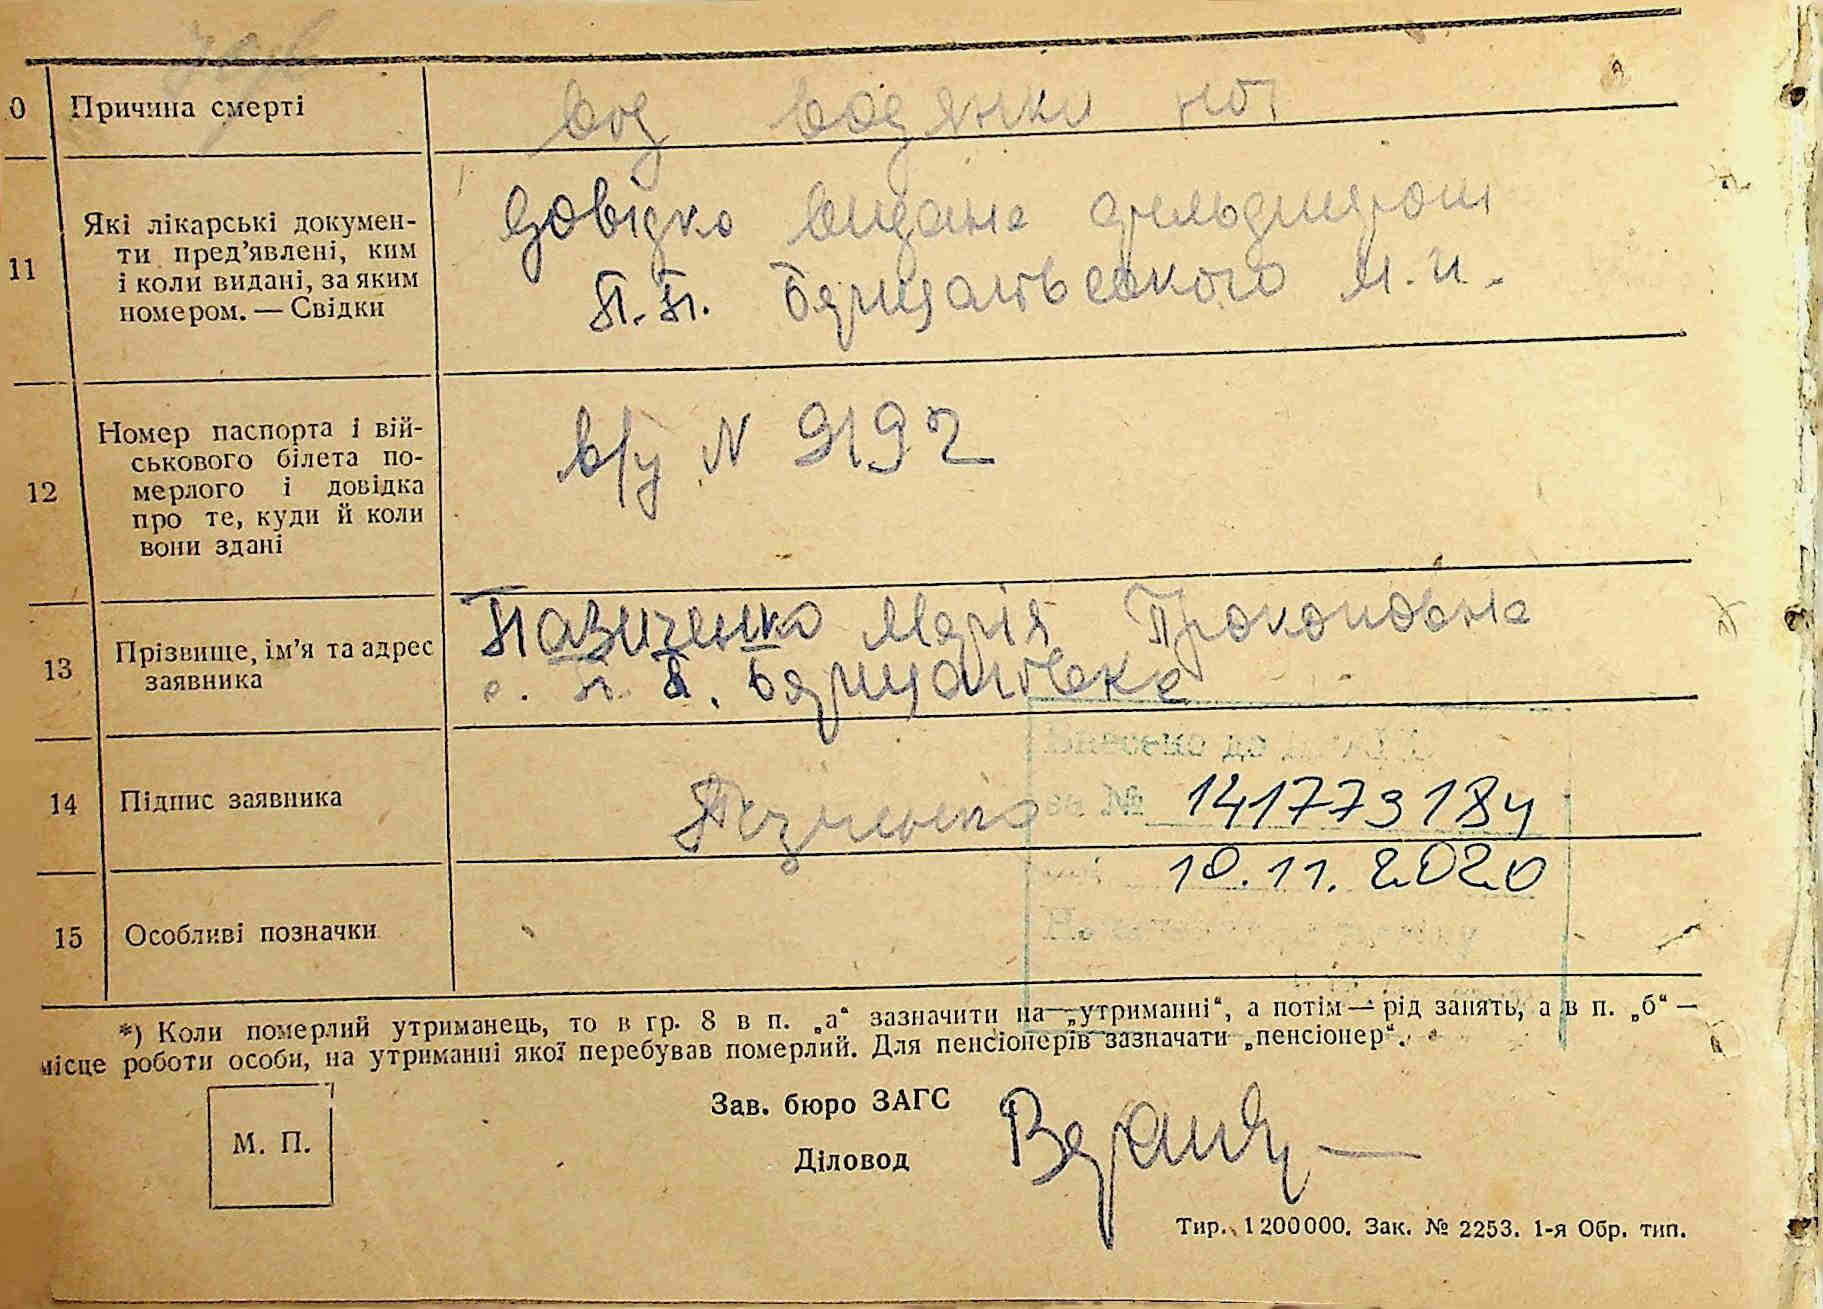 0 Причина смерті
Від водянки
11 Які лікарські докумен-
ти пред'явлені, ким
і коли видані, за яким
номером. — Свідки
Довідка видана фельдшером
П.П. Борщагівського м.п.
12 Номер паспорта і вій-
ськового білета по-
мерлого і довідка
про те, куди й коли
вони здані
в/у N 9192
13 Прізвище, ім'я та адрес
заявника
Марія Прокоповна
с. П. Б. Борщагівка
14 Підпис заявника
Внесено до
за № 141773184
10.11.2020
15 Особливі позначки
*) Коли померлий утриманець, то в гр. 8 в п. „а“ зазначити на „утриманні“, а потім — рід занять, а в п. „б“ —
місце роботи особи, на утриманні якої перебував померлий. Для пенсіонерів зазначати „пенсіонер“.
Зав. бюро ЗАГС
М. П.
Діловод
Тир. 1200000. Зак. № 2253. 1-я Обр. тип.